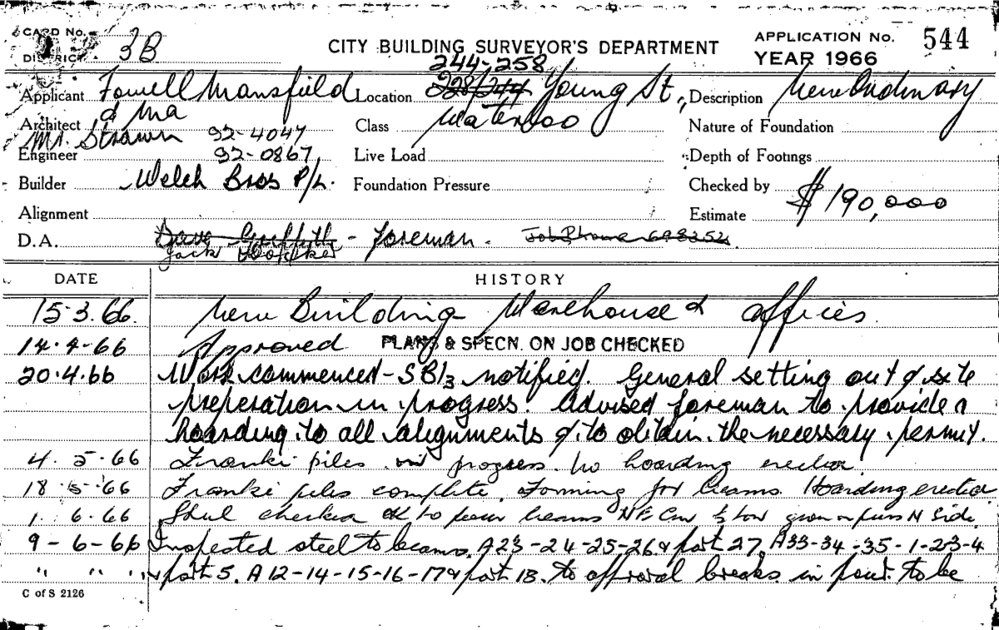 CARD No.
DISTRICT 3B
CITY BUILDING SURVEYOR'S DEPARTMENT
APPLICATION No. 544
YEAR 1966
244-258
Applicant Fowell Mansfield Location 228/244 Young St, Description New Ordinary
Architect & Ma Class Waterloo Nature of Foundation
Mr. Strawn 92-4047
Engineer 92-0867 Live Load Depth of Footings
Builder Welch Bros P/L. Foundation Pressure Checked by
Alignment Estimate $190,000
D.A. Dave Griffith - foreman. Job Phone 698252
Jack
DATE HISTORY
15-3.66. New Building Warehouse & offices.
14-4-66 Approved PLANS & SPECN. ON JOB CHECKED
20.4.66 Work commenced - SBI3 notified. General setting out & site
preperation in progress. Advised foreman to provide a
hoarding to all alignments & to obtain the necessary permit.
4.5.66 Franki piles in progress. No hoarding erected.
18-5-66 Franki piles complete. Forming for beams. Hoarding erected
1. 6.66 Steel checked OK to pour beams N Side
9-6-66 Inspected steel to beams. A23-24-25-26 & part 27, A33-34-35-1-2-3-4
" " " & part 5. A12-14-15-16-17 & part 18. To approval breaks in pour to be
C of S 2126